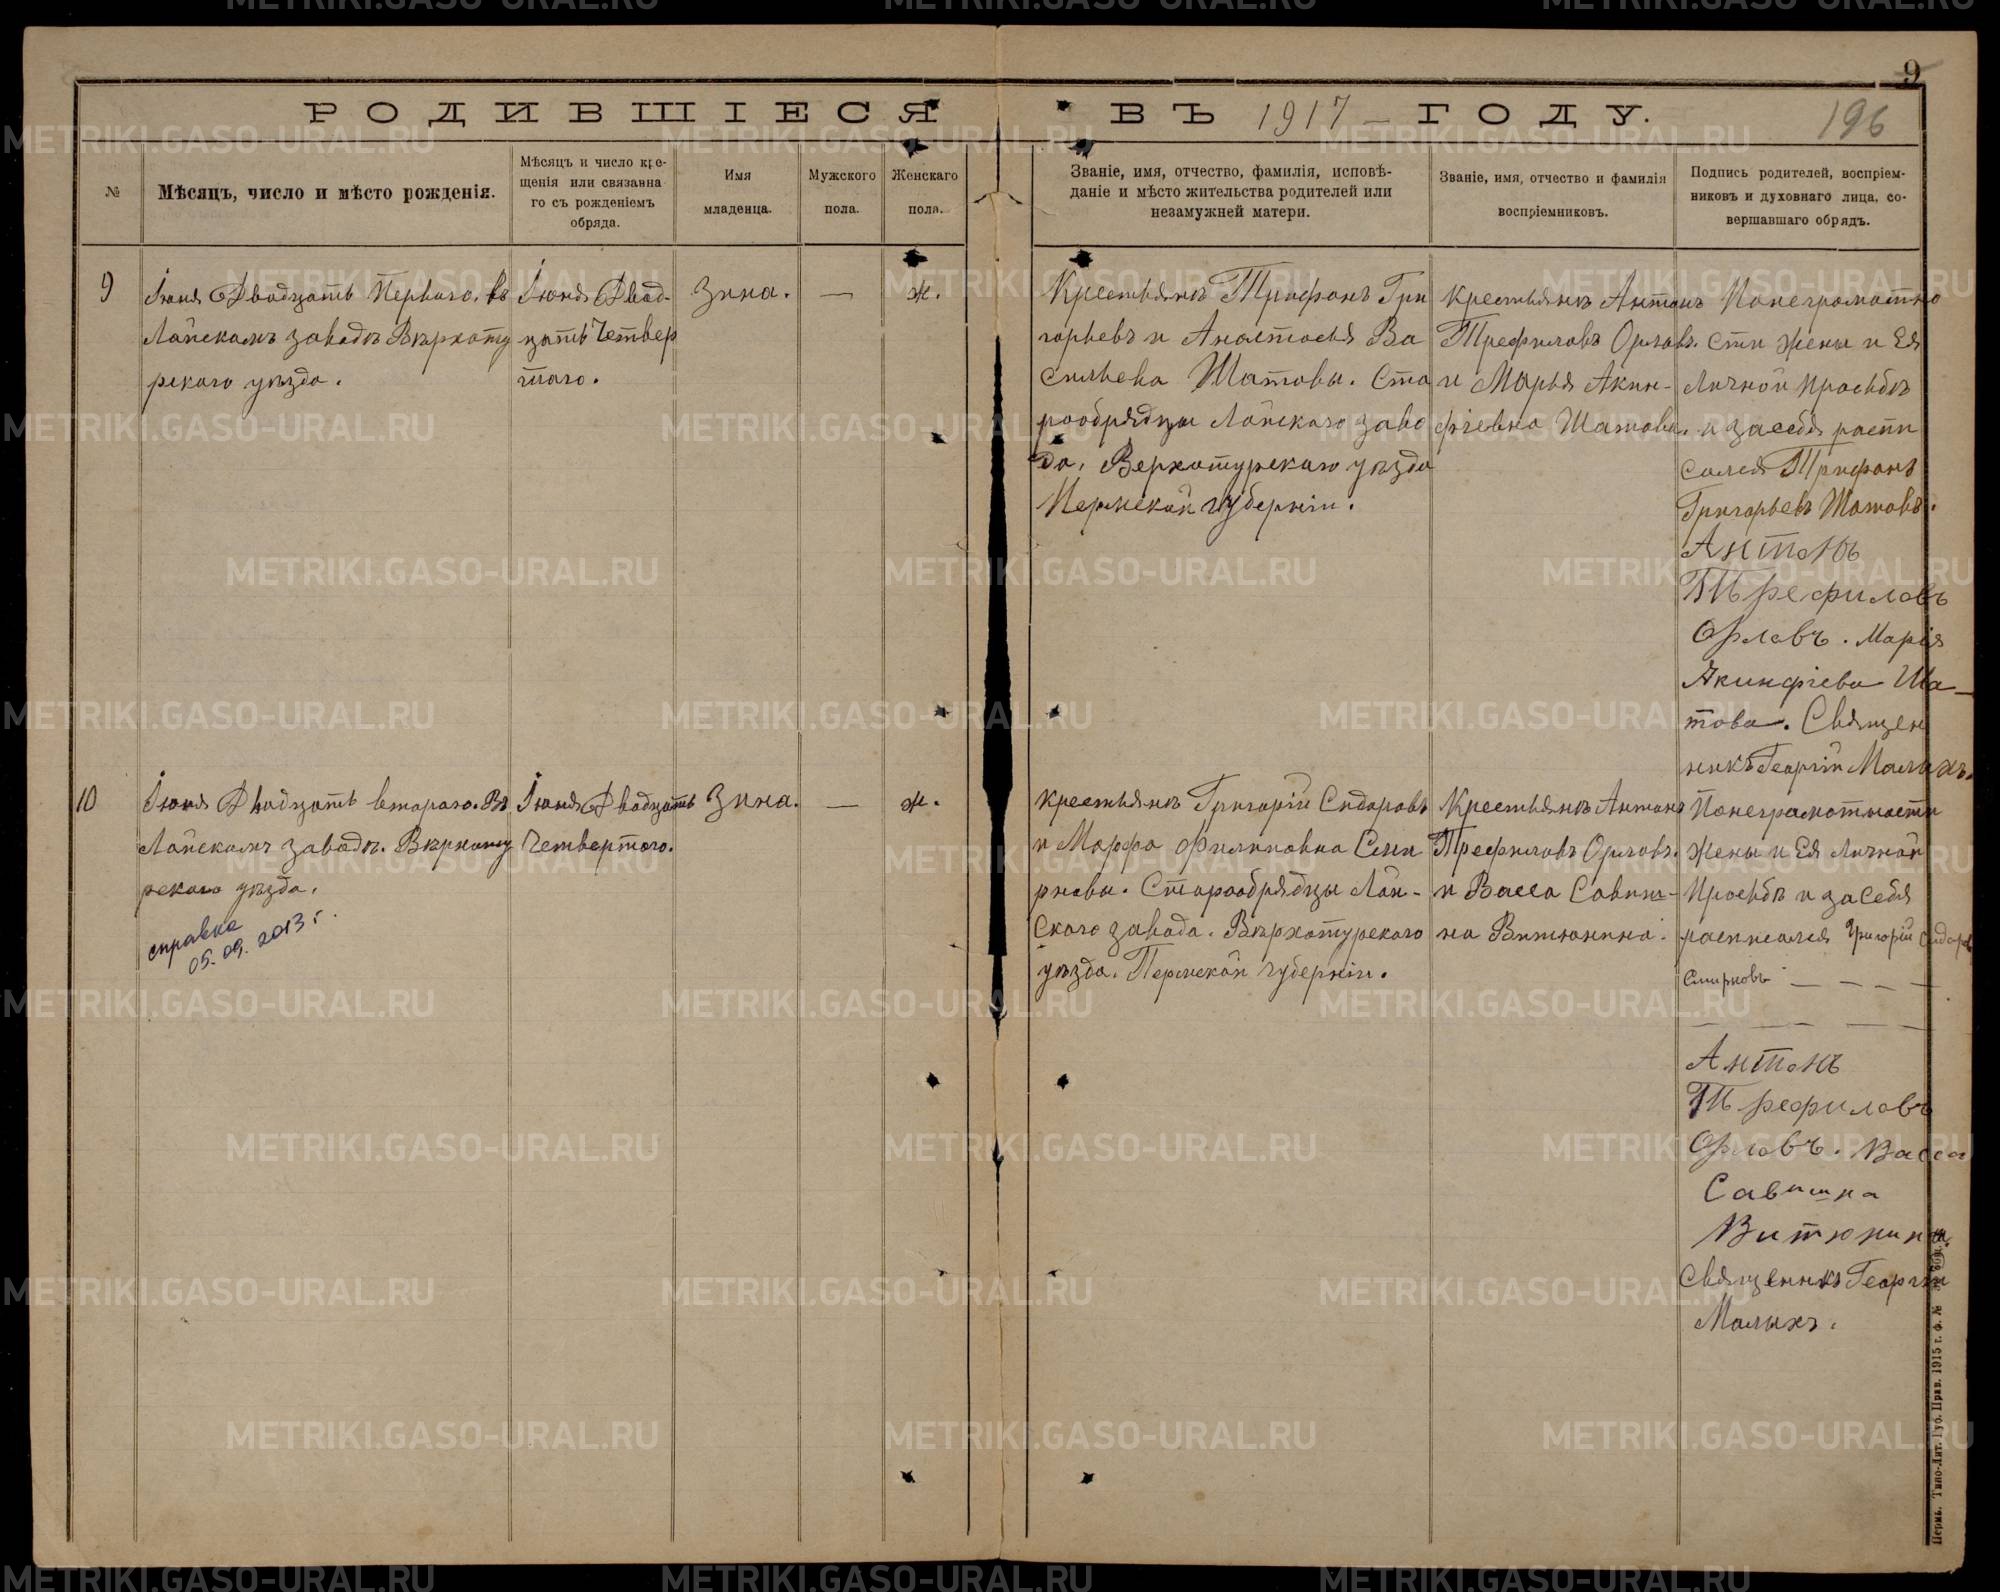 РОДИВШІЕСЯ ВЪ 1917 ГОДУ.
9
196
№
Мѣсяцъ, число и мѣсто рожденія.
Мѣсяцъ и число кре-
щенія или связанна
го съ рожденіемъ
обряда.
Имя
младенца.
Мужского
пола.
Женскаго
пола.
Званіе, имя, отчество, фамилія, исповѣ-
даніе и мѣсто жительства родителей или
незамужней матери.
Званіе, имя, отчество и фамилія
воспріемниковъ.
Подпись родителей, воспріем-
никовъ и духовнаго лица, со-
вершавшаго обрядъ.
9
Іюня Двадцать Перваго. въ
Лайскомъ заводѣ Вѣрхоту
рскаго уѣзда.
Іюня Двад-
цать Четвер
таго.
Зина.
—
ж.
Крестьянъ Трифонъ Гри
горьевъ и Анастасія Ва
сильева Шатовы. Ста
рообрядцы Лайскаго заво
да. Верхотурскаго уѣзда
Пермской губерніи.
Крестьянъ Антонъ
Трефиловъ Орловъ.
и Марья Акин-
фіевна Шатова.
Понеграмотно
сти жены и Ея
Личной просьбѣ
и засебя распи
сался Трифонъ
Григорьевъ Шатовъ.
Антонъ
Трефиловъ
Орловъ. Марія
Акинфіева Ша-
това. Священ
никъ Георгій Малыхъ.
10
Іюня Двадцать втараго. Въ
Лайскомъ заводѣ. Вѣрхоту
рскаго уѣзда.
справка
05.09.2013 г.
Іюня Двадцать
Четвертаго.
Зина.
—
ж.
крестьянъ Григорій Сидоровъ
и Марфа Филиповна Сми
рновы. Старообрядцы Лай-
Скаго завода. Вѣрхотурскаго
уѣзда. Пермской губерніи.
Крестьянъ Антонъ
Трефиловъ Орловъ.
и Васса Савиш-
на Витюнина.
Понеграмотности
жены и Ея Личной
Просьбѣ и за Себя
расписался Григорій Сидоров
Смирновъ
Антонъ
Трефиловъ
Орловъ. Васса
Савишна
Витюнина
Священникъ Георгій
Малыхъ.
Пермь. Типо-Лит. Губ. Прав. 1915 г. ф. №
METRIKI.GASO-URAL.RU